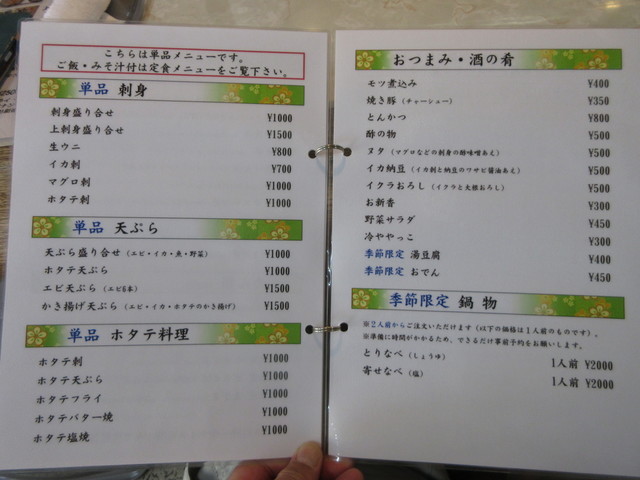 こちらは単品メニューです。
ご飯・みそ汁付は定食メニューをご覧下さい。
単品 刺身
刺身盛り合せ ¥1000
上刺身盛り合せ ¥1500
生ウニ ¥800
イカ刺 ¥700
マグロ刺 ¥1000
ホタテ刺 ¥1000
単品 天ぷら
天ぷら盛り合せ（エビ・イカ・魚・野菜） ¥1000
ホタテ天ぷら ¥1000
エビ天ぷら（エビ6本） ¥1500
かき揚げ天ぷら（エビ・イカ・ホタテのかき揚げ） ¥1500
単品 ホタテ料理
ホタテ刺 ¥1000
ホタテ天ぷら ¥1000
ホタテフライ ¥1000
ホタテバター焼 ¥1000
ホタテ塩焼 ¥1000
おつまみ・酒の肴
モツ煮込み ¥400
焼き豚（チャーシュー） ¥350
とんかつ ¥800
酢の物 ¥500
ヌタ（マグロなどの刺身の酢味噌あえ） ¥500
イカ納豆（イカ刺と納豆のワサビ醤油あえ） ¥500
イクラおろし（イクラと大根おろし） ¥500
お新香 ¥300
野菜サラダ ¥450
冷ややっこ ¥300
季節限定 湯豆腐 ¥400
季節限定 おでん ¥450
季節限定 鍋物
※2人前からご注文いただけます（以下の価格は1人前のものです）。
※準備に時間がかかるため、できるだけ事前予約をお願いします。
とりなべ（しょうゆ） 1人前 ¥2000
寄せなべ（塩） 1人前 ¥2000